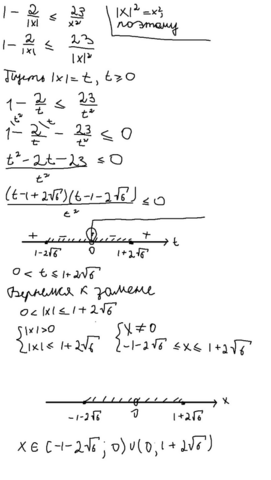 1 - 2/|x| ≤ 23/x²
|x|² = x²;
поэтому
1 - 2/|x| ≤ 23/|x|²
Пусть |x| = t, t ≥ 0
1 - 2/t ≤ 23/t²
1\t² - 2\t/t - 23/t² ≤ 0
t² - 2t - 23/t² ≤ 0
(t-1+2√6)(t-1-2√6)/t² ≤ 0
+ - - + t
1-2√6 0 1+2√6
0 < t ≤ 1+2√6
Вернемся к замене
0 < |x| ≤ 1+2√6
{|x| > 0 {x ≠ 0
|x| ≤ 1+2√6 -1-2√6 ≤ x ≤ 1+2√6
x
-1-2√6 0 1+2√6
x ∈ [-1-2√6; 0) ∪ (0; 1+2√6]